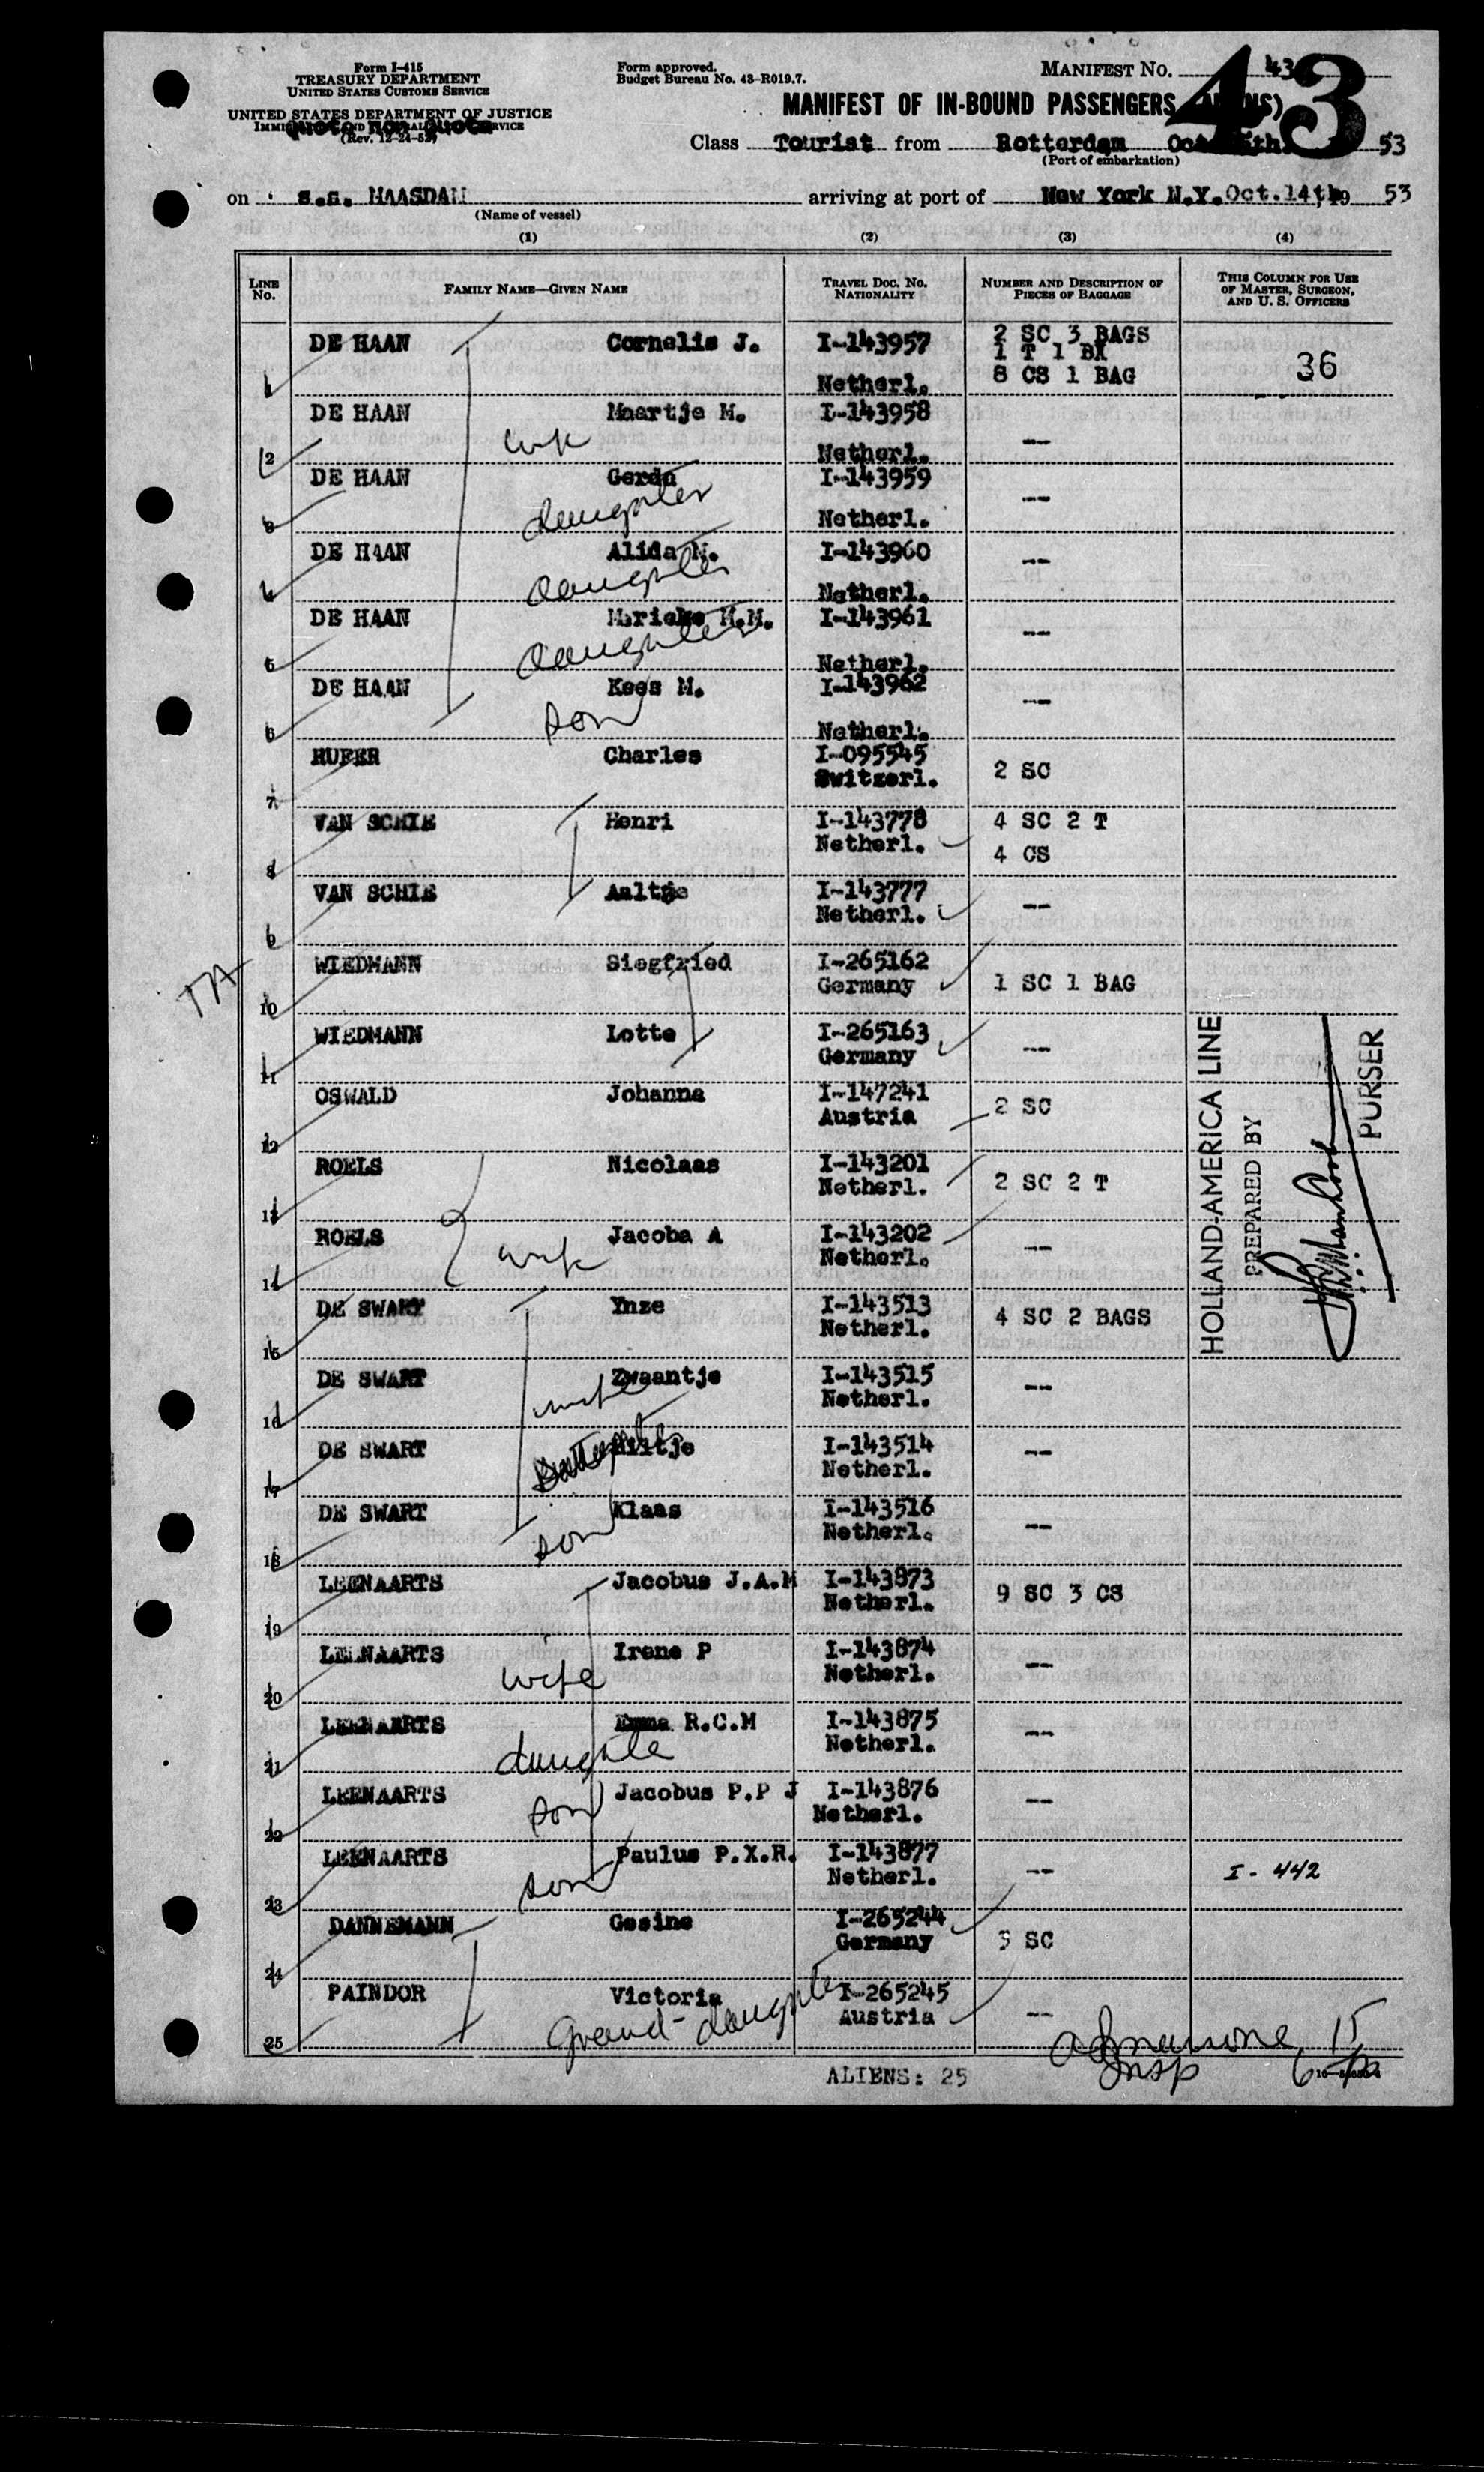 Form I-415
TREASURY DEPARTMENT
UNITED STATES CUSTOMS SERVICE
UNITED STATES DEPARTMENT OF JUSTICE
quota non quota
(Rev. 12-24-52)
Form approved.
Budget Bureau No. 43-R019.7.
MANIFEST No. 43
43
MANIFEST OF IN-BOUND PASSENGERS
Class Tourist from Rotterdam 53
(Port of embarkation)
on s.s. MAASDAM arriving at port of New York N.Y. Oct.14th 19 53
(Name of vessel)
(1) (2) (3) (4)
LINE No. FAMILY NAME—GIVEN NAME TRAVEL DOC. NO. NATIONALITY NUMBER AND DESCRIPTION OF PIECES OF BAGGAGE THIS COLUMN FOR USE OF MASTER, SURGEON, AND U. S. OFFICERS
1 DE HAAN Cornelis J. I-143957 Netherl. 2 SC 3 BAGS 1 T 1 BX 8 CS 1 BAG 36
2 DE HAAN wife Maartje M. I-143958 Netherl. --
3 DE HAAN daughter Gerda I-143959 Netherl. --
4 DE HAAN daughter Alida M. I-143960 Netherl. --
5 DE HAAN daughter M.M. I-143961 Netherl. --
6 DE HAAN son Kees M. I-143962 Netherl. --
7 RUFER Charles I-095545 Switzerl. 2 SC
8 VAN SCHIE Henri I-143778 Netherl. 4 SC 2 T 4 CS
9 VAN SCHIE Aaltje I-143777 Netherl. --
10 WIEDMANN Siegfried I-265162 Germany 1 SC 1 BAG
11 WIEDMANN Lotte I-265163 Germany --
12 OSWALD Johanna I-147241 Austria 2 SC
13 ROELS Nicolaas I-143201 Netherl. 2 SC 2 T
14 ROELS wife Jacoba A I-143202 Netherl. --
15 DE SWART Ynze I-143513 Netherl. 4 SC 2 BAGS
16 DE SWART wife Zwaantje I-143515 Netherl. --
17 DE SWART I-143514 Netherl. --
18 DE SWART son Klaas I-143516 Netherl. --
19 LEENAARTS Jacobus J.A.M I-143873 Netherl. 9 SC 3 CS
20 LEENAARTS wife Irene P I-143874 Netherl. --
21 LEENAARTS daughter Emma R.C.M I-143875 Netherl. --
22 LEENAARTS son Jacobus P.P J I-143876 Netherl. --
23 LEENAARTS son Paulus P.X.R. I-143877 Netherl. -- I-442
24 DANNEMANN Gesine I-265244 Germany 3 SC
25 PAINDOR Grand-daughter Victoria I-265245 Austria --
HOLLAND-AMERICA LINE
PREPARED BY
PURSER
Insp
ALIENS: 25